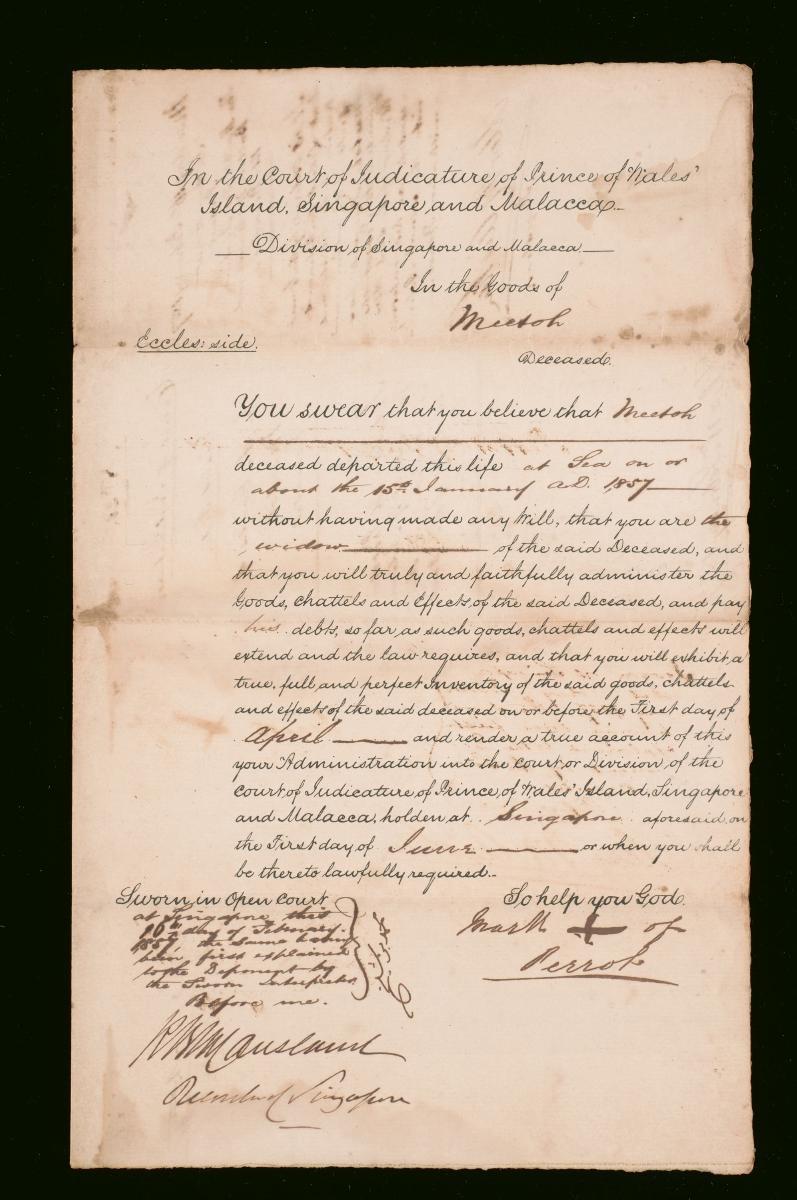 In the Court of Judicature of Prince of Wales'
Island, Singapore and Malacca
Division of Singapore and Malacca
In the Goods of
Meetoh
Eccles: side.
Deceased.
You swear that you believe that Meetoh
deceased departed this life at Sea on or
about the 15th January A.D. 1857
without having made any Will, that you are the
widow of the said Deceased, and
that you will truly and faithfully administer the
Goods, Chattels and Effects, of the said Deceased, and pay
his debts, so far as such goods, chattels and effects will
extend and the law requires, and that you will exhibit a
true, full and perfect Inventory of the said goods, chattels
and effects of the said deceased on or before the First day of
April and render a true account of this
your Administration into the Court or Division, of the
Court of Judicature, of Prince of Wales' Island, Singapore
and Malacca, holden at Singapore aforesaid on
the First day of June or when you shall
be thereto lawfully required.
Sworn in Open Court
at Singapore this
10th day of February
1857, the same having
been first explained
to the Deponent by
the Sworn Interpreter
Before me.
So help you God.
Mark + of
Perrok
R B McCausland
Recorder of Singapore